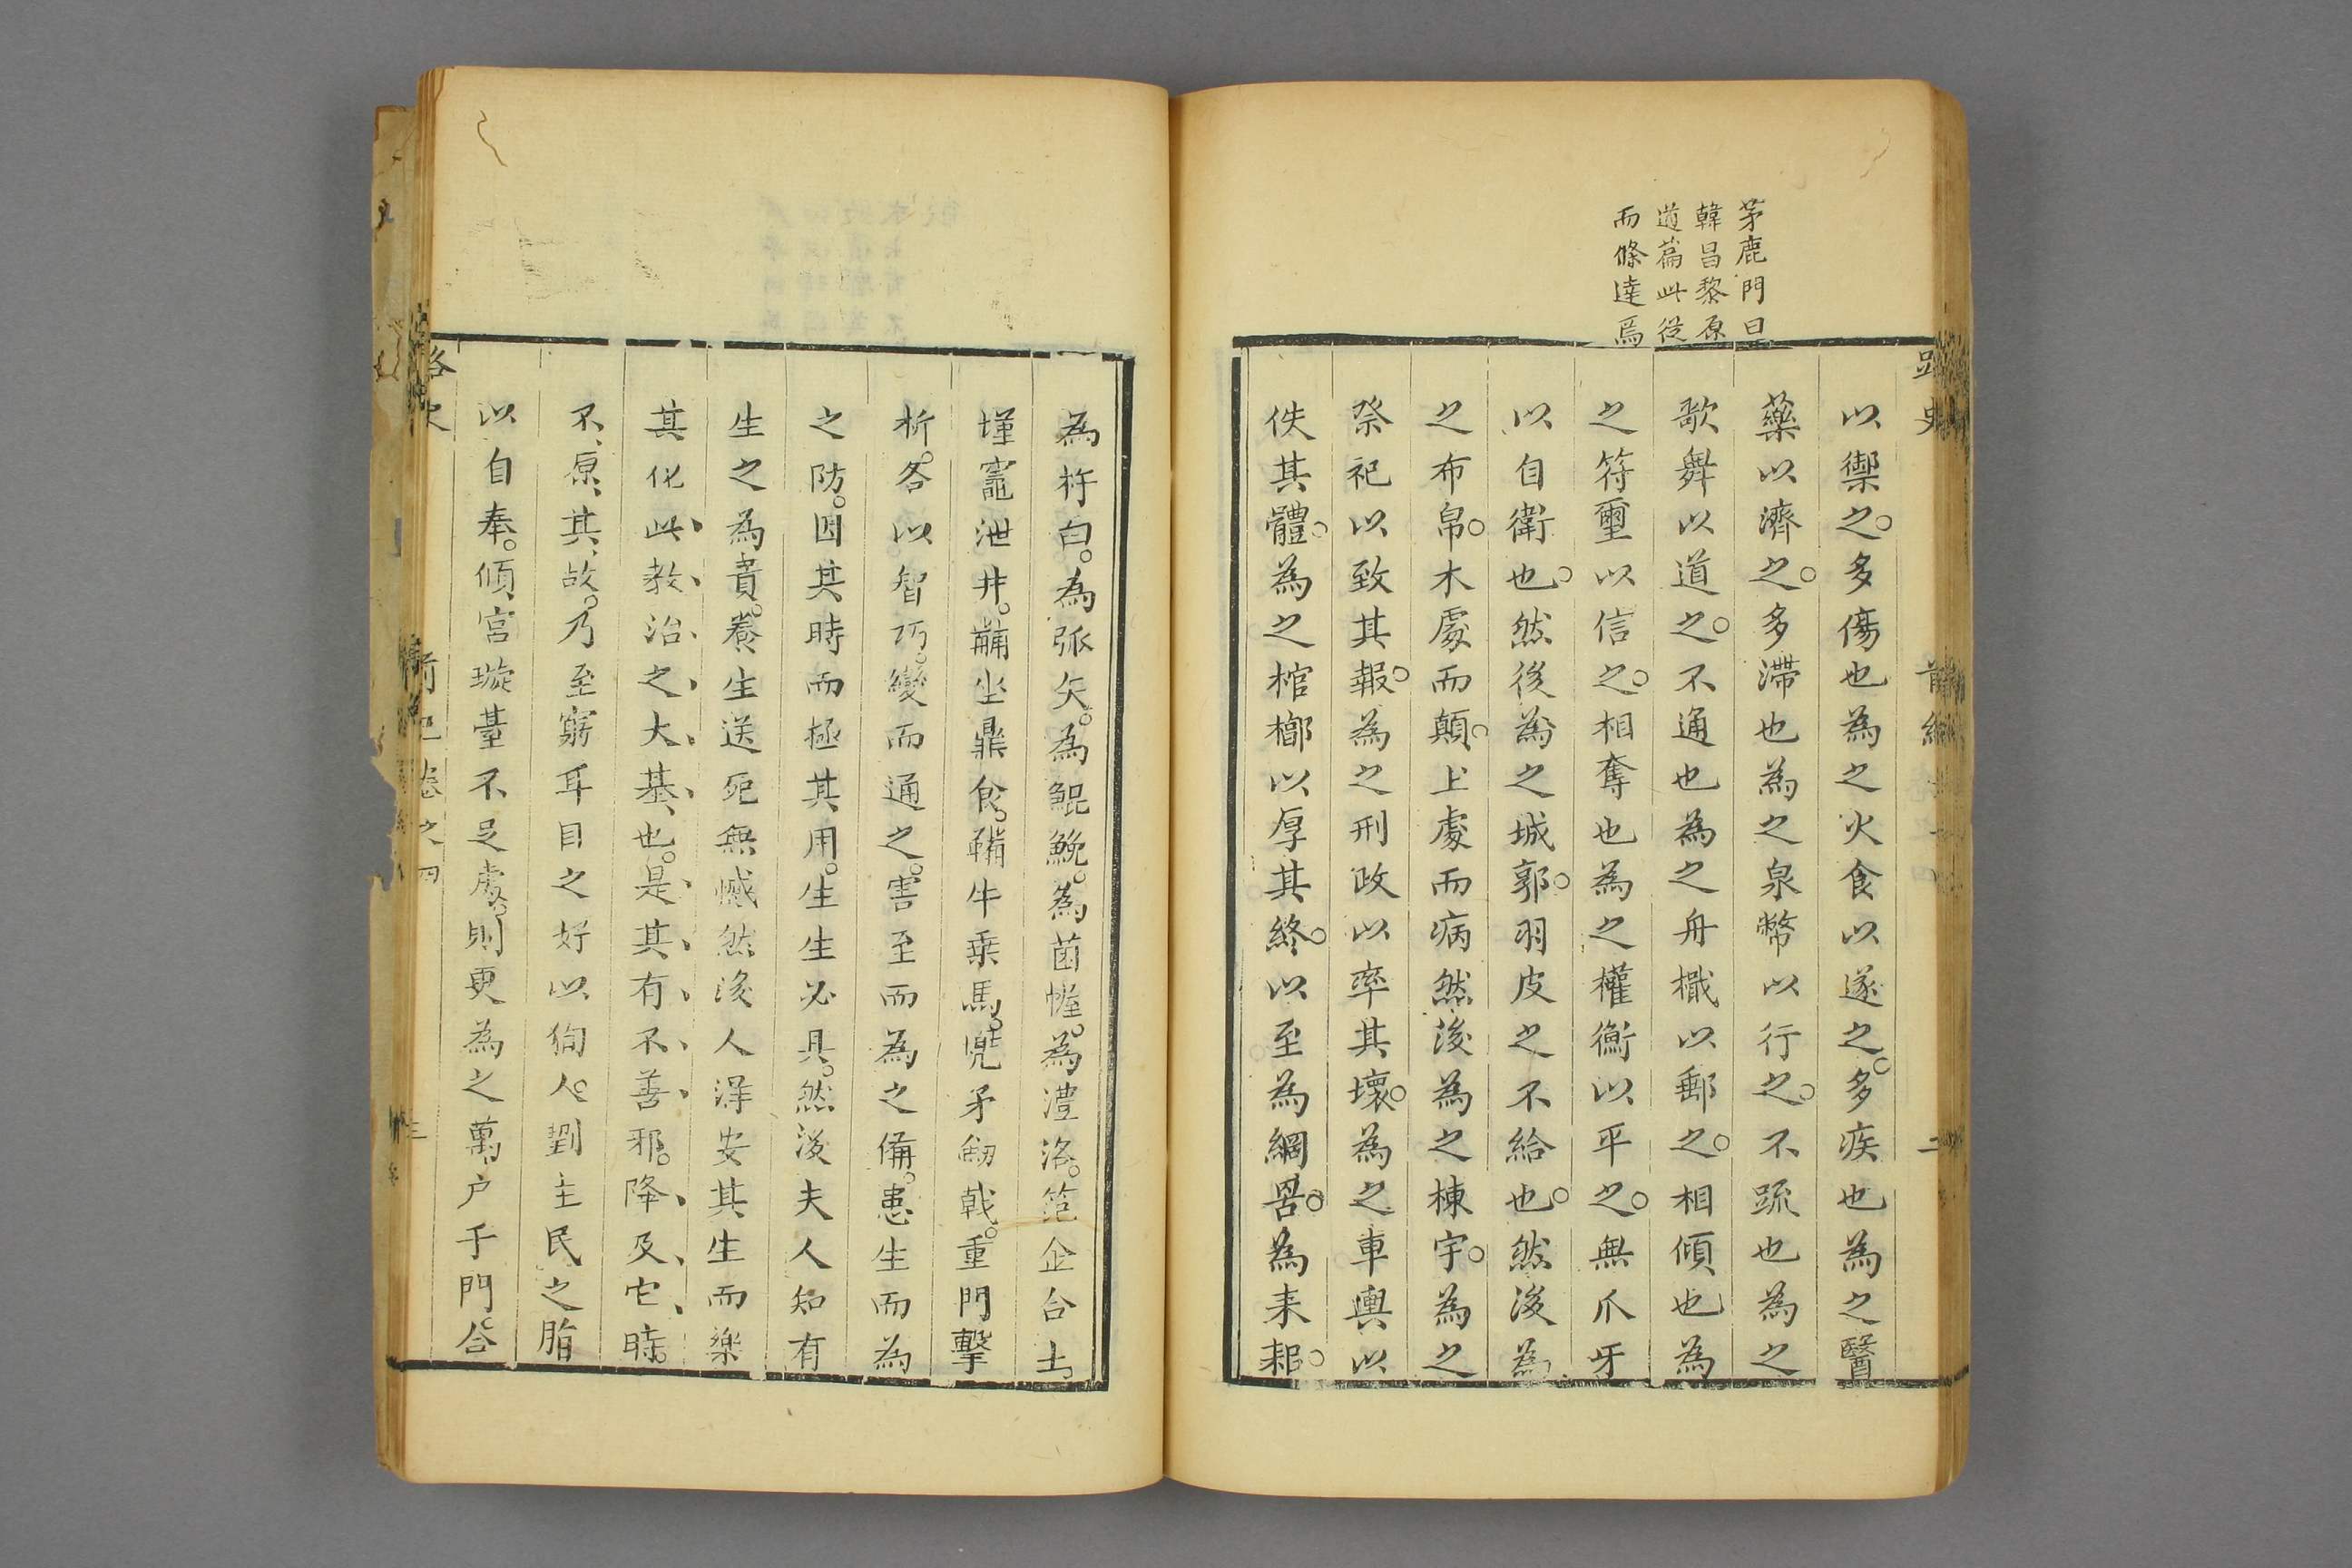 茅鹿門曰
韓昌黎原
道篇此從
而條達焉
以禦之多傷也為之火食以遂之多疾也為之醫
藥以濟之多滯也為之泉幣以行之不疏也為之
歌舞以道之不通也為之舟檝以郵之相傾也為
之符璽以信之相奪也為之權衡以平之無爪牙
以自衛也然後為之城郭羽皮之不給也然後為
之布帛木處而顛上處而病然後為之棟宇為之
祭祀以致其報為之刑政以率其壞為之車輿以
佚其體為之棺槨以厚其終以至為綱罟為耒耜
為杵臼為弧矢為鯤鮸為茵幄為澧洛笵企合土
墐竈泄井鬴坐鼎食鞴牛乗馬兜矛劒戟重門擊
析各以智巧變而通之害至而為之備患生而為
之防因其時而極其用生生必具然後夫人知有
生之為貴養生送死無憾然後人洋安其生而樂
其化此教治之大基也是其有不善邪降及它時
不原其故乃至窮耳目之好以徇人劉主民之脂
以自奉傾宮璇臺不足處則更為之萬户千門合
路史
卷之四
三